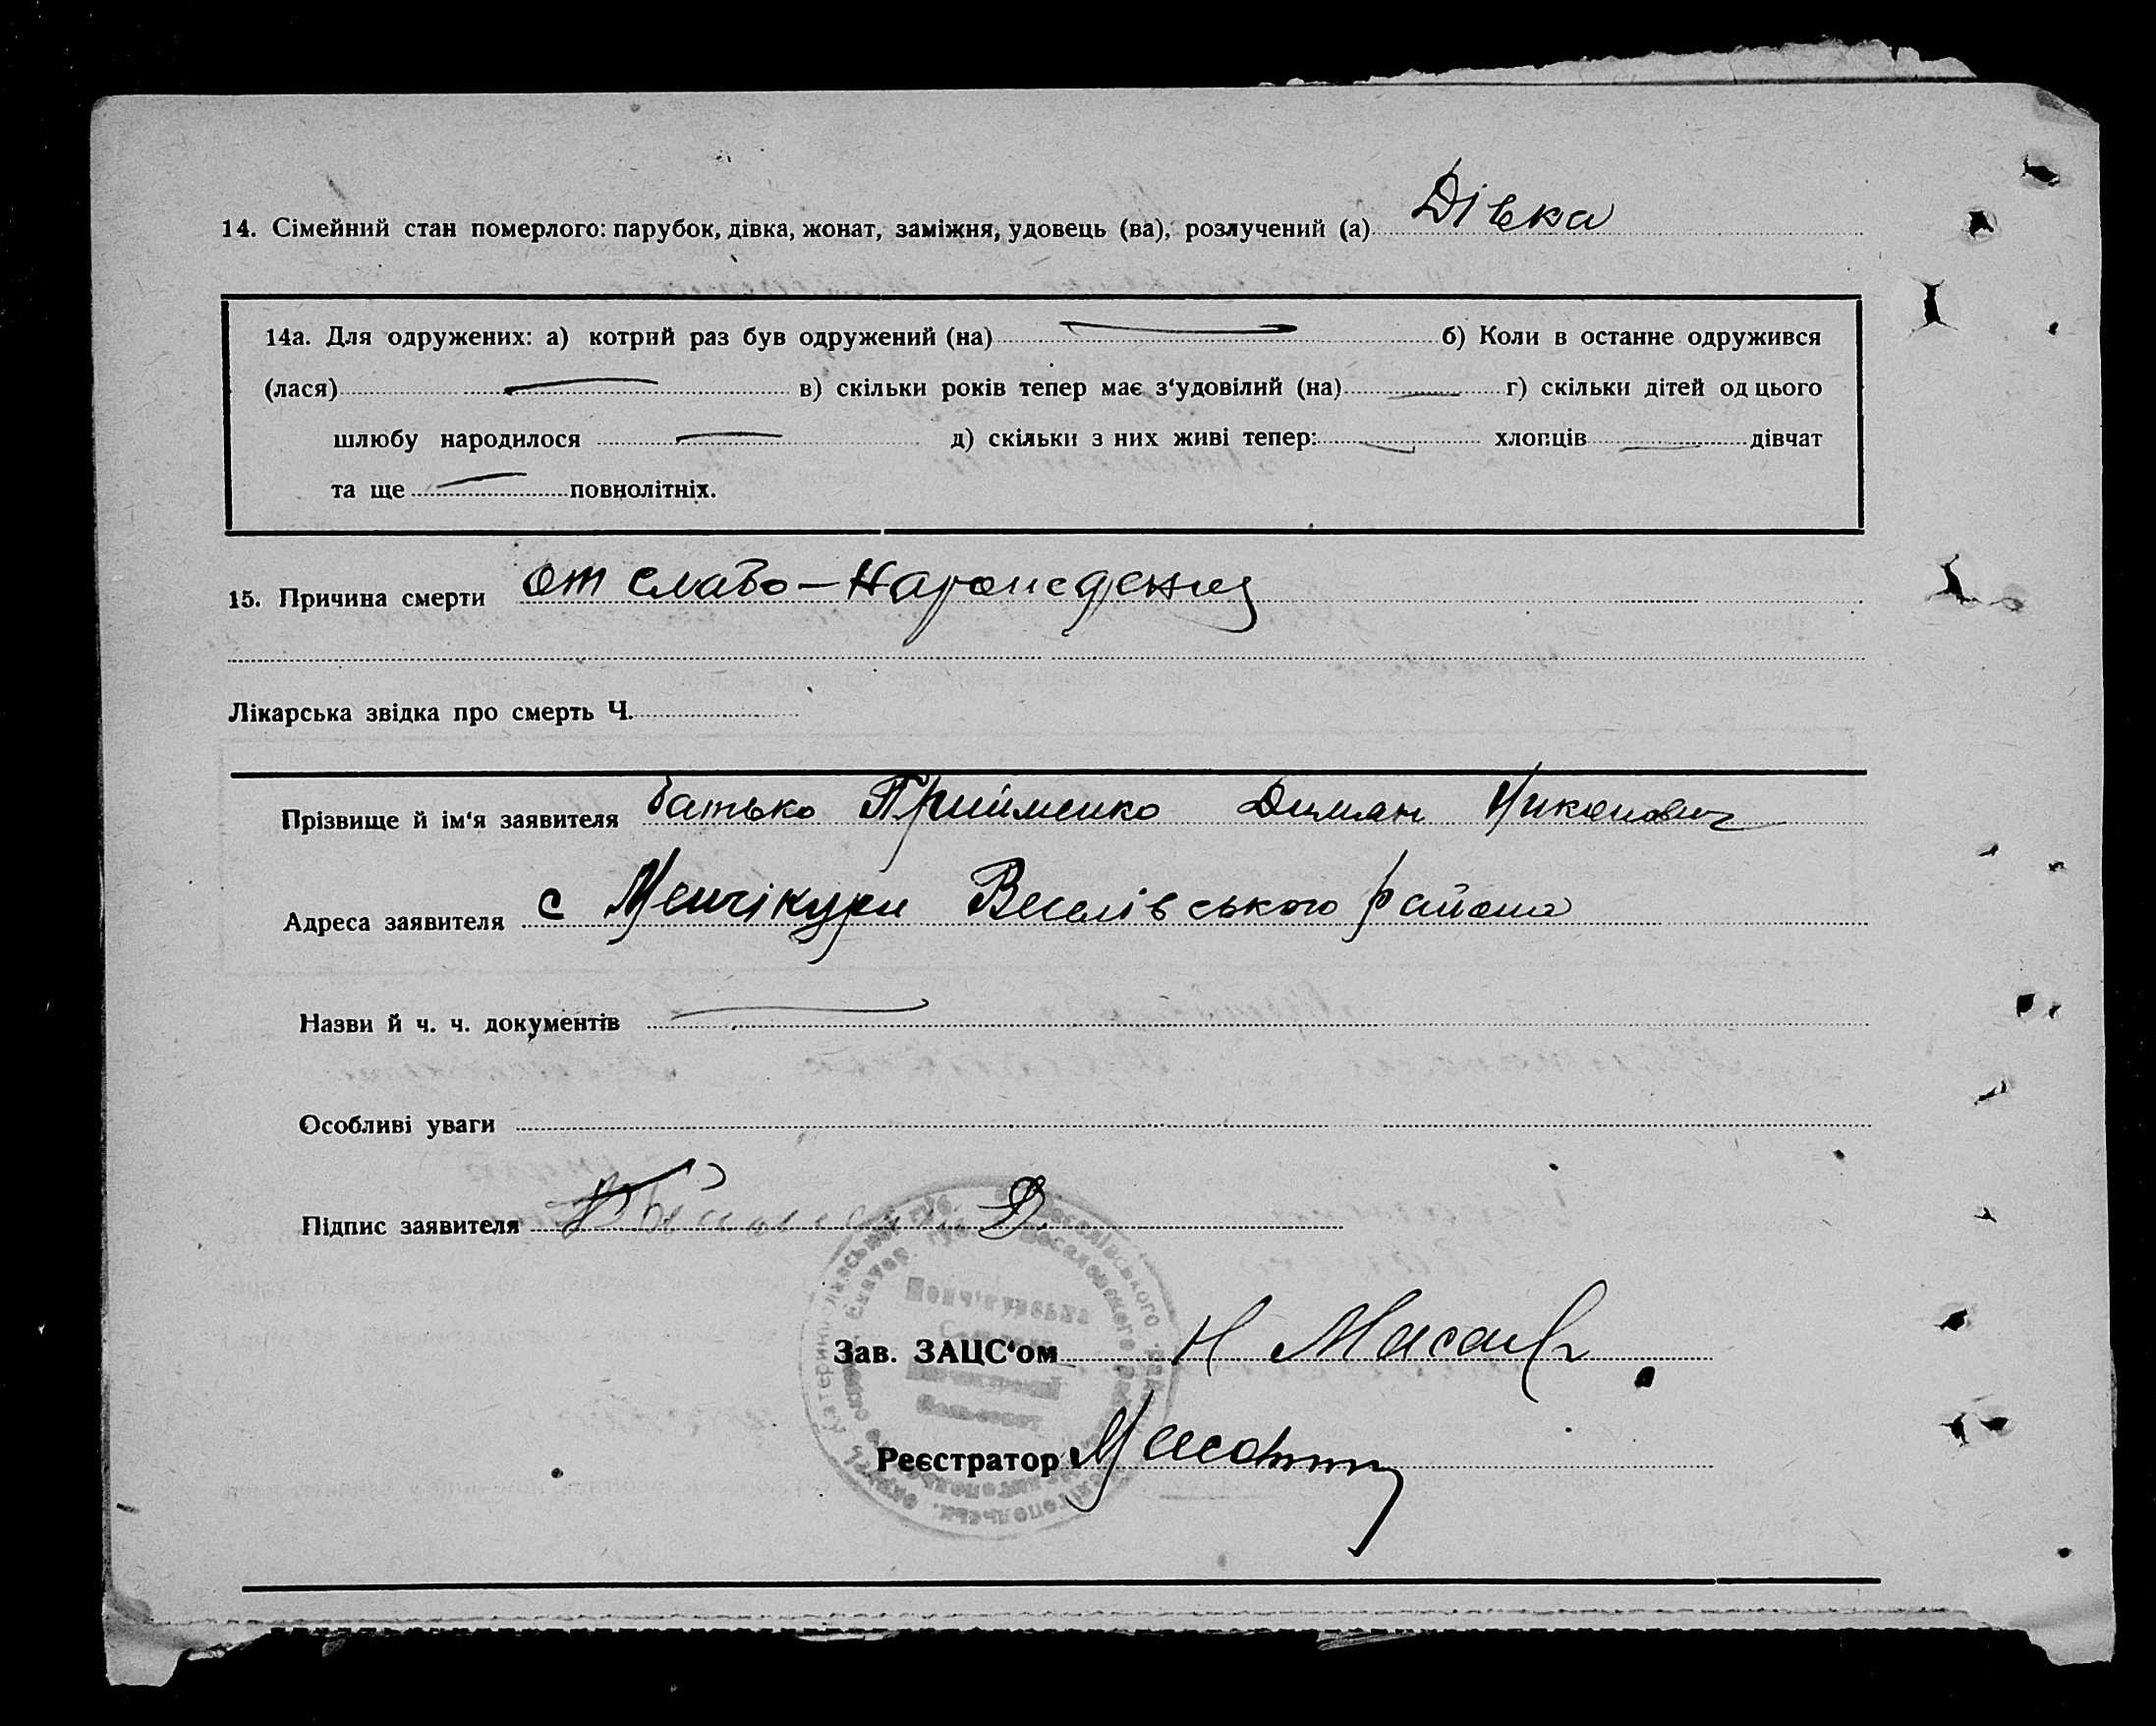 14. Сімейний стан померлого: парубок, дівка, жонат, заміжня, удовець (ва), розлучений (а) Дівка
14а. Для одружених: а) котрий раз був одружений (на) б) Коли в останне одружився
(лася) в) скільки років тепер має з‘удовілий (на) г) скільки дітей од цього
шлюбу народилося д) скільки з них живі тепер: хлопців дівчат
та ще повнолітніх.
15. Причина смерти от слабо-нарождения
Лікарська звідка про смерть Ч.
Прізвище й ім‘я заявителя батько Прийменко Демян Никонович
Адреса заявителя с Менчікури Веселівського района
Назви й ч. ч. документів
Особливі уваги
Підпис заявителя Д
Менчікурська
Зав. ЗАЦС‘ом Н
Реєстратор